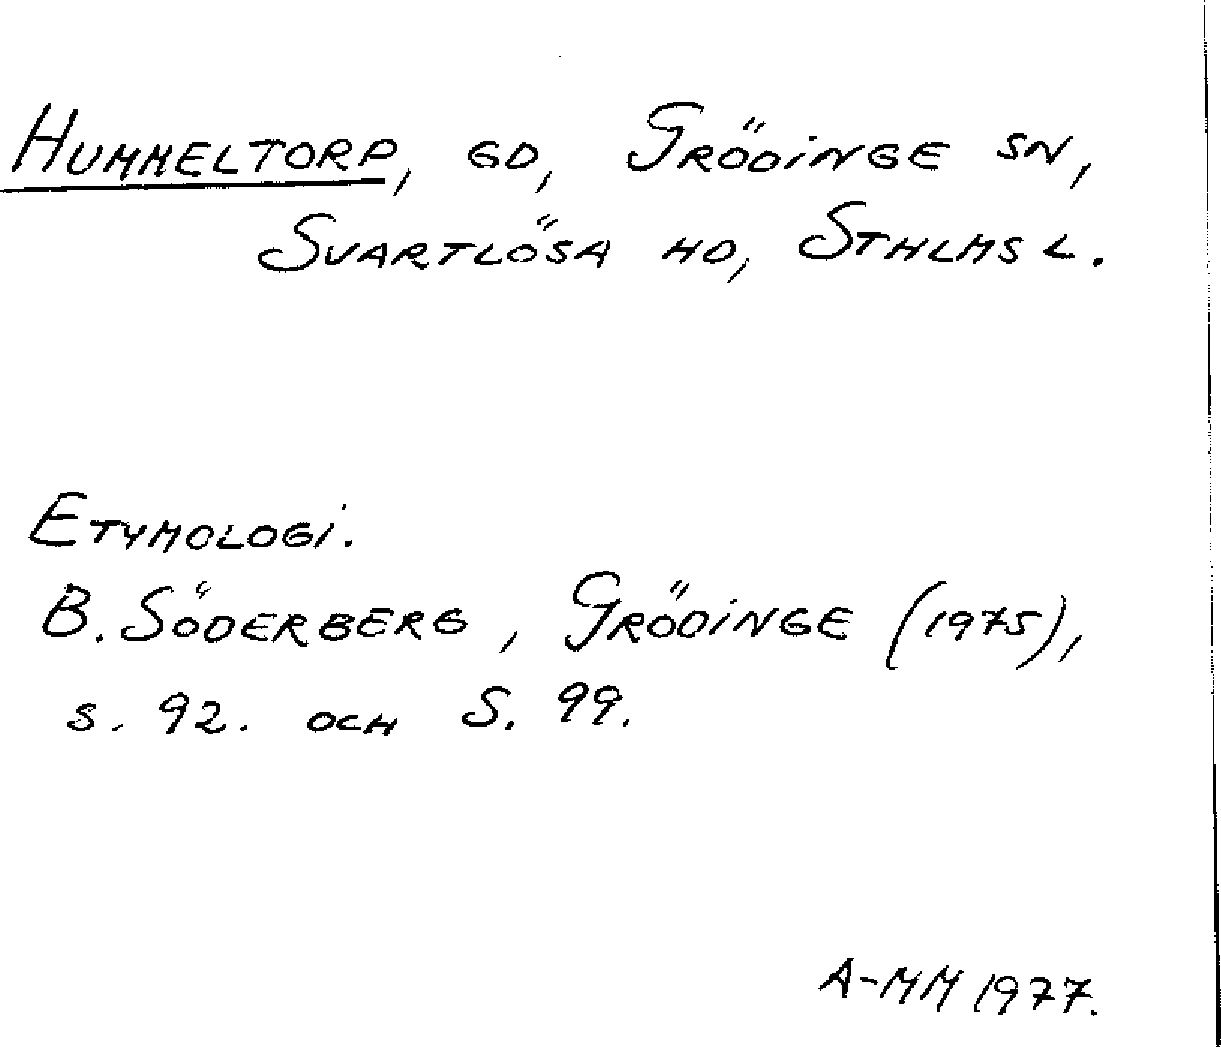 HUMMELTORP, GD, GRÖDINGE SN,
SVARTLÖSA HD, STHLMS L.
ETYMOLOGI.
B. SÖDERBERG, GRÖDINGE (1975),
s. 92. OCH S. 99.
A-MM 1977.